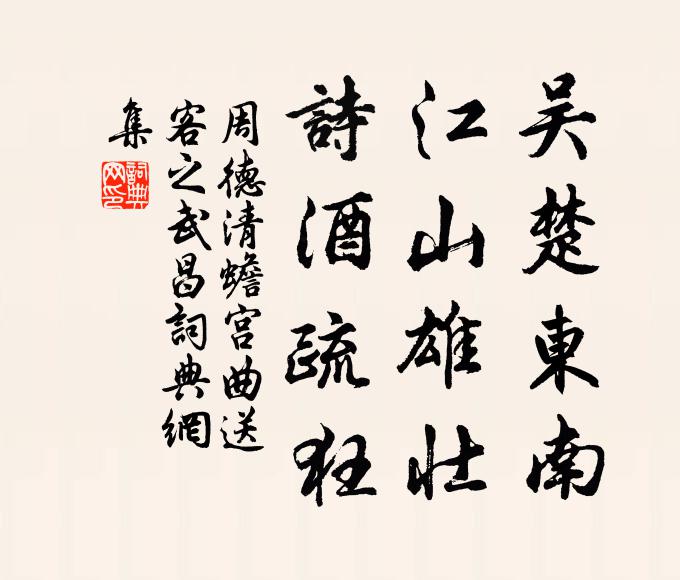 吴楚東南
江山雄壮
詩酒疏狂
周德清蟾宫曲送
客之武昌詞典網
集
詞典
网印